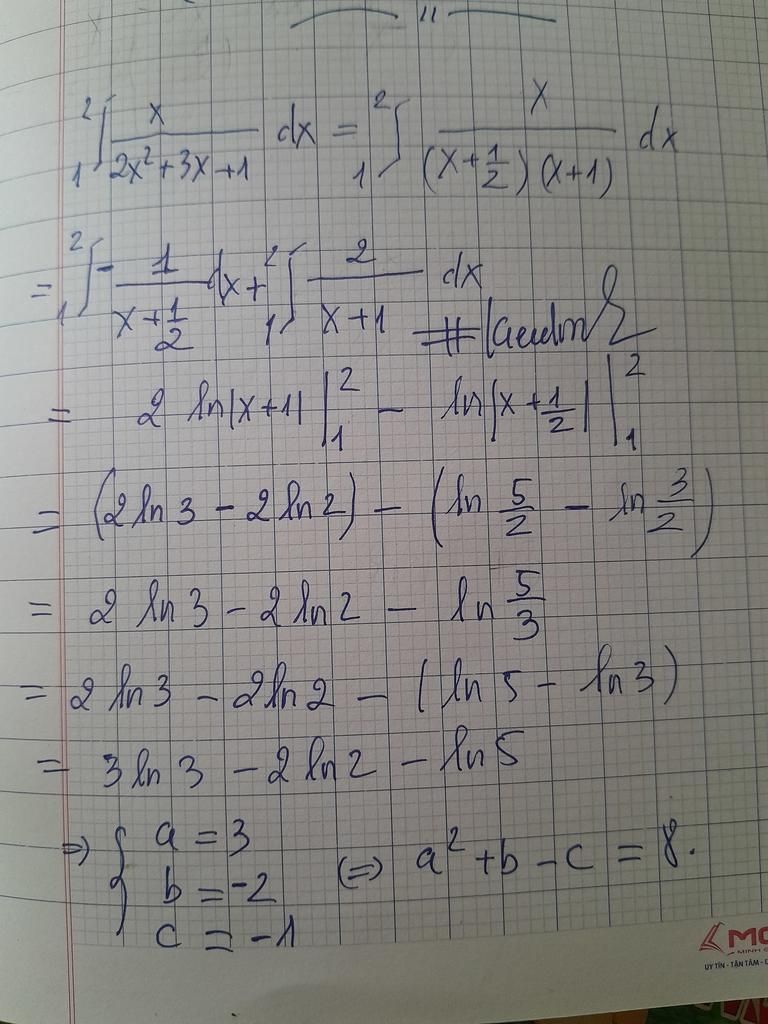 "
₁∫² x/(2x²+3x+1) dx = ₁∫² x/((x+1/2)(x+1)) dx
= ₁∫² -1/(x+1/2) dx + ₁∫² 2/(x+1) dx
= 2 ln|x+1| |₁² - ln|x+1/2| |₁²
= (2ln3 - 2ln2) - (ln 5/2 - ln 3/2)
= 2 ln3 - 2ln2 - ln 5/3
= 2 ln3 - 2ln2 - (ln5 - ln3)
= 3ln3 - 2ln2 - ln5
⇒ { a = 3
b = -2 (⇒) a² + b - c = 8.
c = -1
UY TÍN - TẬN TÂM -